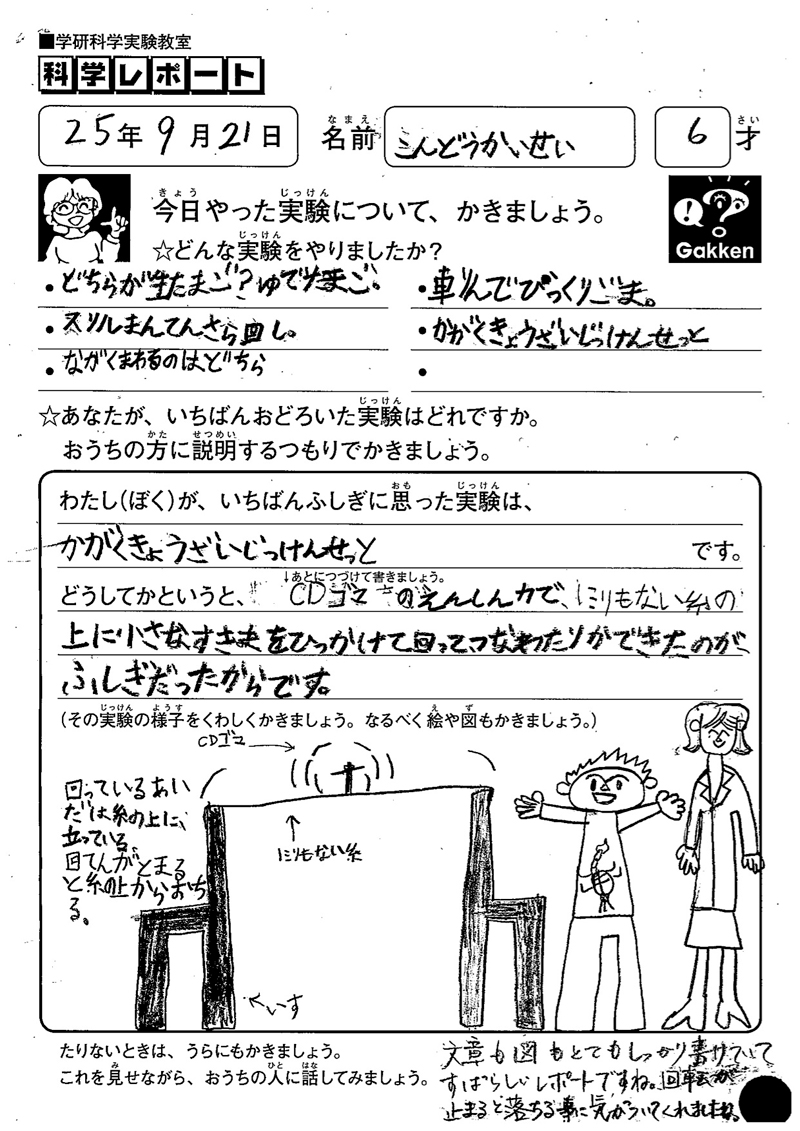 ■学研科学実験教室
科学レポート
25年9月21日 名前 こんどうかいせい 6才
今日やった実験について、かきましょう。
Gakken
☆どんな実験をやりましたか?
・どちらが生たまご?ゆでたまご。
・車りんでびっくりごま。
・スリルまんてんさら回し。
・かがくきょうざいじっけんせっと
・ながくまわるのはどちら
・
☆あなたが、いちばんおどろいた実験はどれですか。
おうちの方に説明するつもりでかきましょう。
わたし(ぼく)が、いちばんふしぎに思った実験は、
かがくきょうざいじっけんせっと です。
↓あとにつづけて書きましょう。
どうしてかというと、CDゴマーのえんしん力で、ミリもない糸の
上に小さなすきまをひっかけて回ってつなわたりができたのが
ふしぎだったからです。
(その実験の様子をくわしくかきましょう。なるべく絵や図もかきましょう。)
CDゴマ
回っているあい
だは糸の上に、
立っている、
回てんがとまる
と糸の上からおち
る。
ミリもない糸
いす
たりないときは、うらにもかきましょう。
これを見せながら、おうちの人に話してみましょう。
文章も図もとてもしっかり書けていて
すばらしいレポートですね。回転が
止まると落ちる事に気がついてくれましたね。